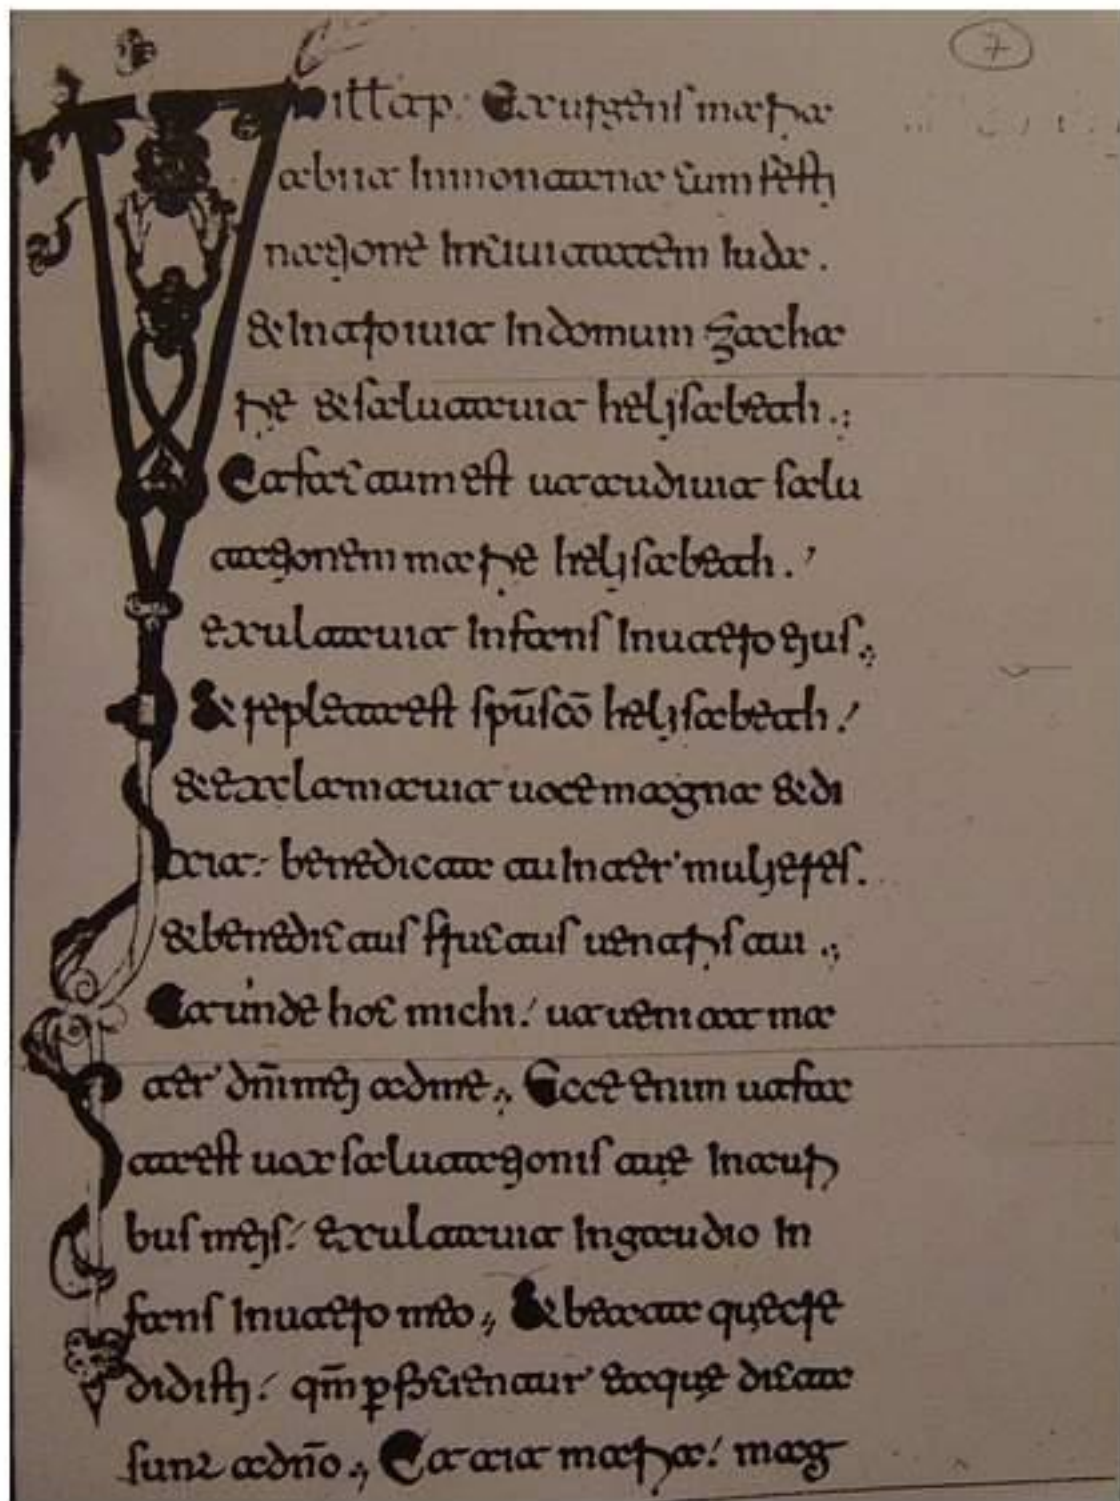 In ill tēp: Exurgens maria
abiit In montana cum festi
natione In civitatem Iuda.
& Intravit In domum zacha
rie & salutavit helisabeth.;
Et factum est ut audivit salu
tationem marie helisabeth.'
exultavit Infans In utero eius.;
& repleta est spū scō helisabeth!
& exclamavit voce magna & di
xit: benedicta tu Inter mulieres.
& benedictus fructus ventris tui .;
Et unde hoc michi! ut veniat ma
ter dn̄i mei ad me.; Ecce enim ut fac
ta est vox salutationis tuę In auri
bus meis! exultavit In gaudio In
fans In utero meo.; & beata quę cre
didisti! qm̄ perficientur ea quę dicta
sunt a dn̄o.; Et ait maria! mag
7